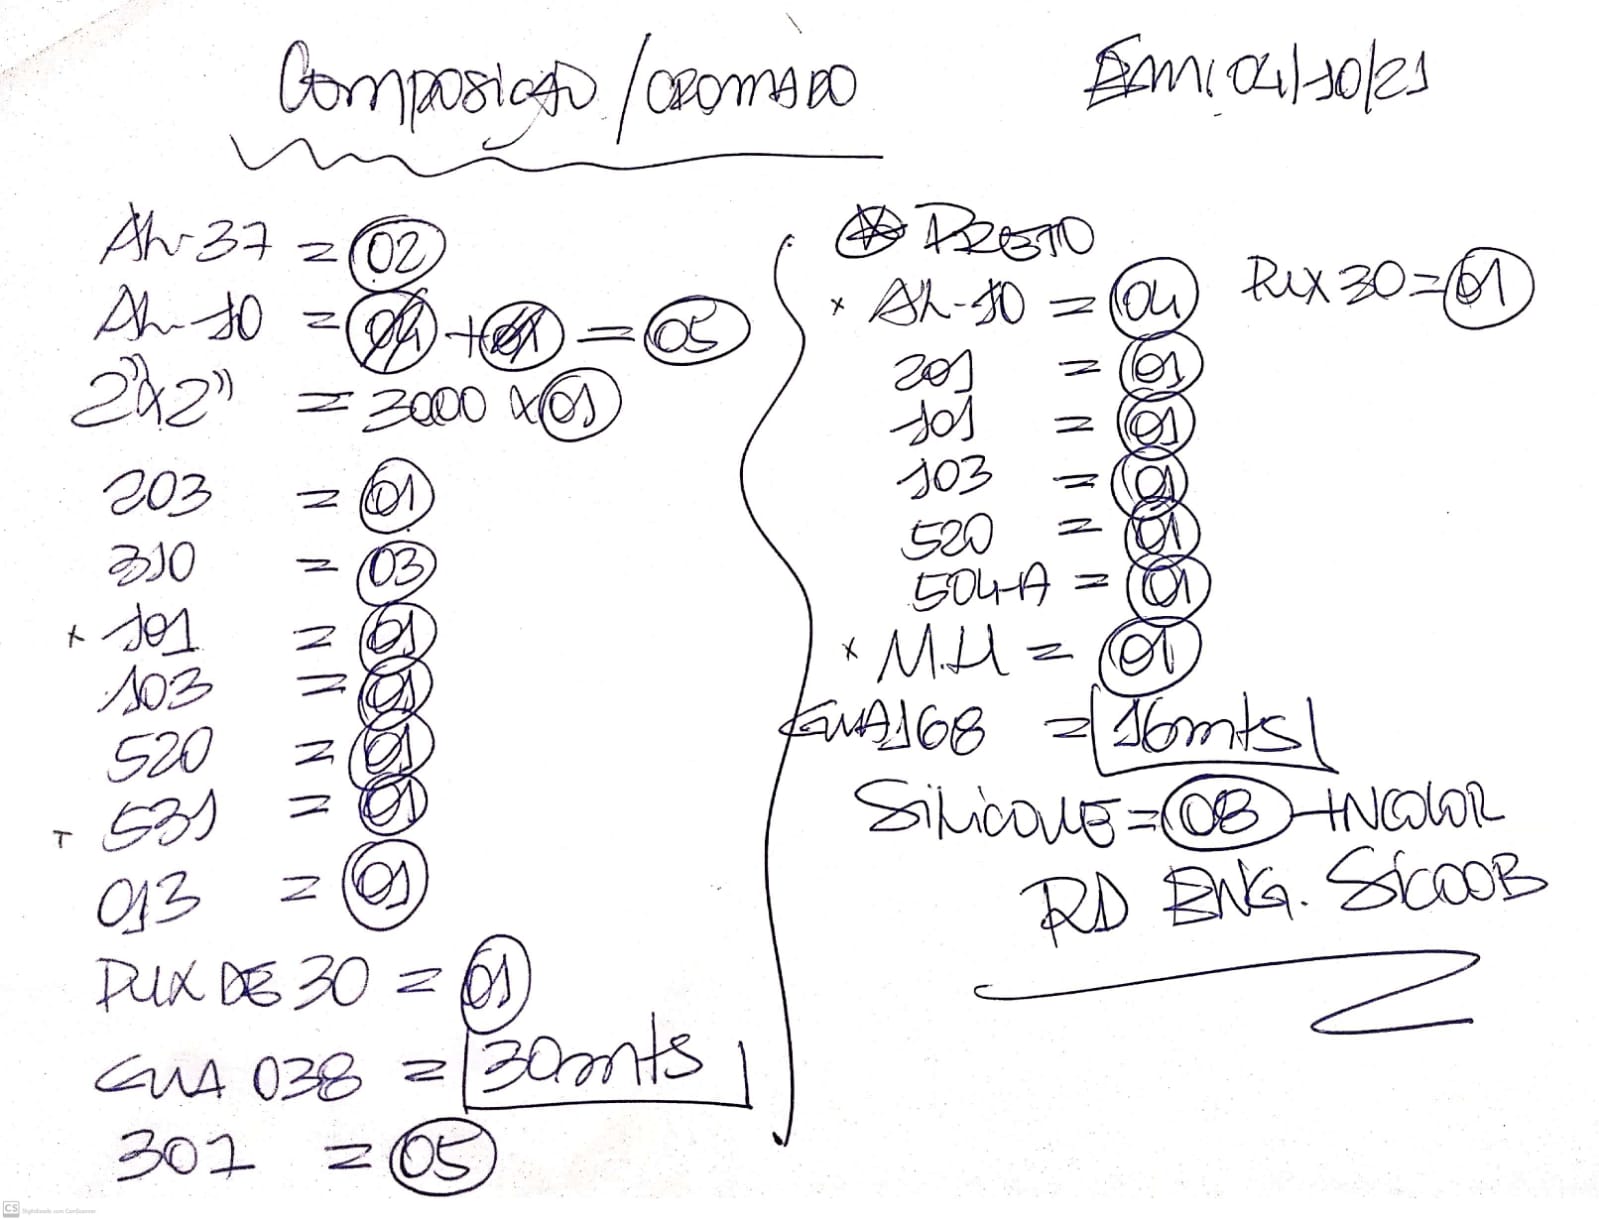 COMPOSIÇÃO / CROMADO
EM: 04/10/21
AL-37 = 02
AL-10 = 04 + 01 = 05
2"x2" = 3000 x 01
203 = 01
310 = 03
x 101 = 01
103 = 01
520 = 01
531 = 01
013 = 01
PUX DE 30 = 01
GUA 038 = 30mts
307 = 05
PRETO
x AL-10 = 04
PUX 30 = 01
201 = 01
101 = 01
103 = 01
520 = 01
504-A = 01
x M.H = 01
GUA 168 = 16mts
SILICONE = 08 INCOLOR
RD ENG. SICOOB
CS